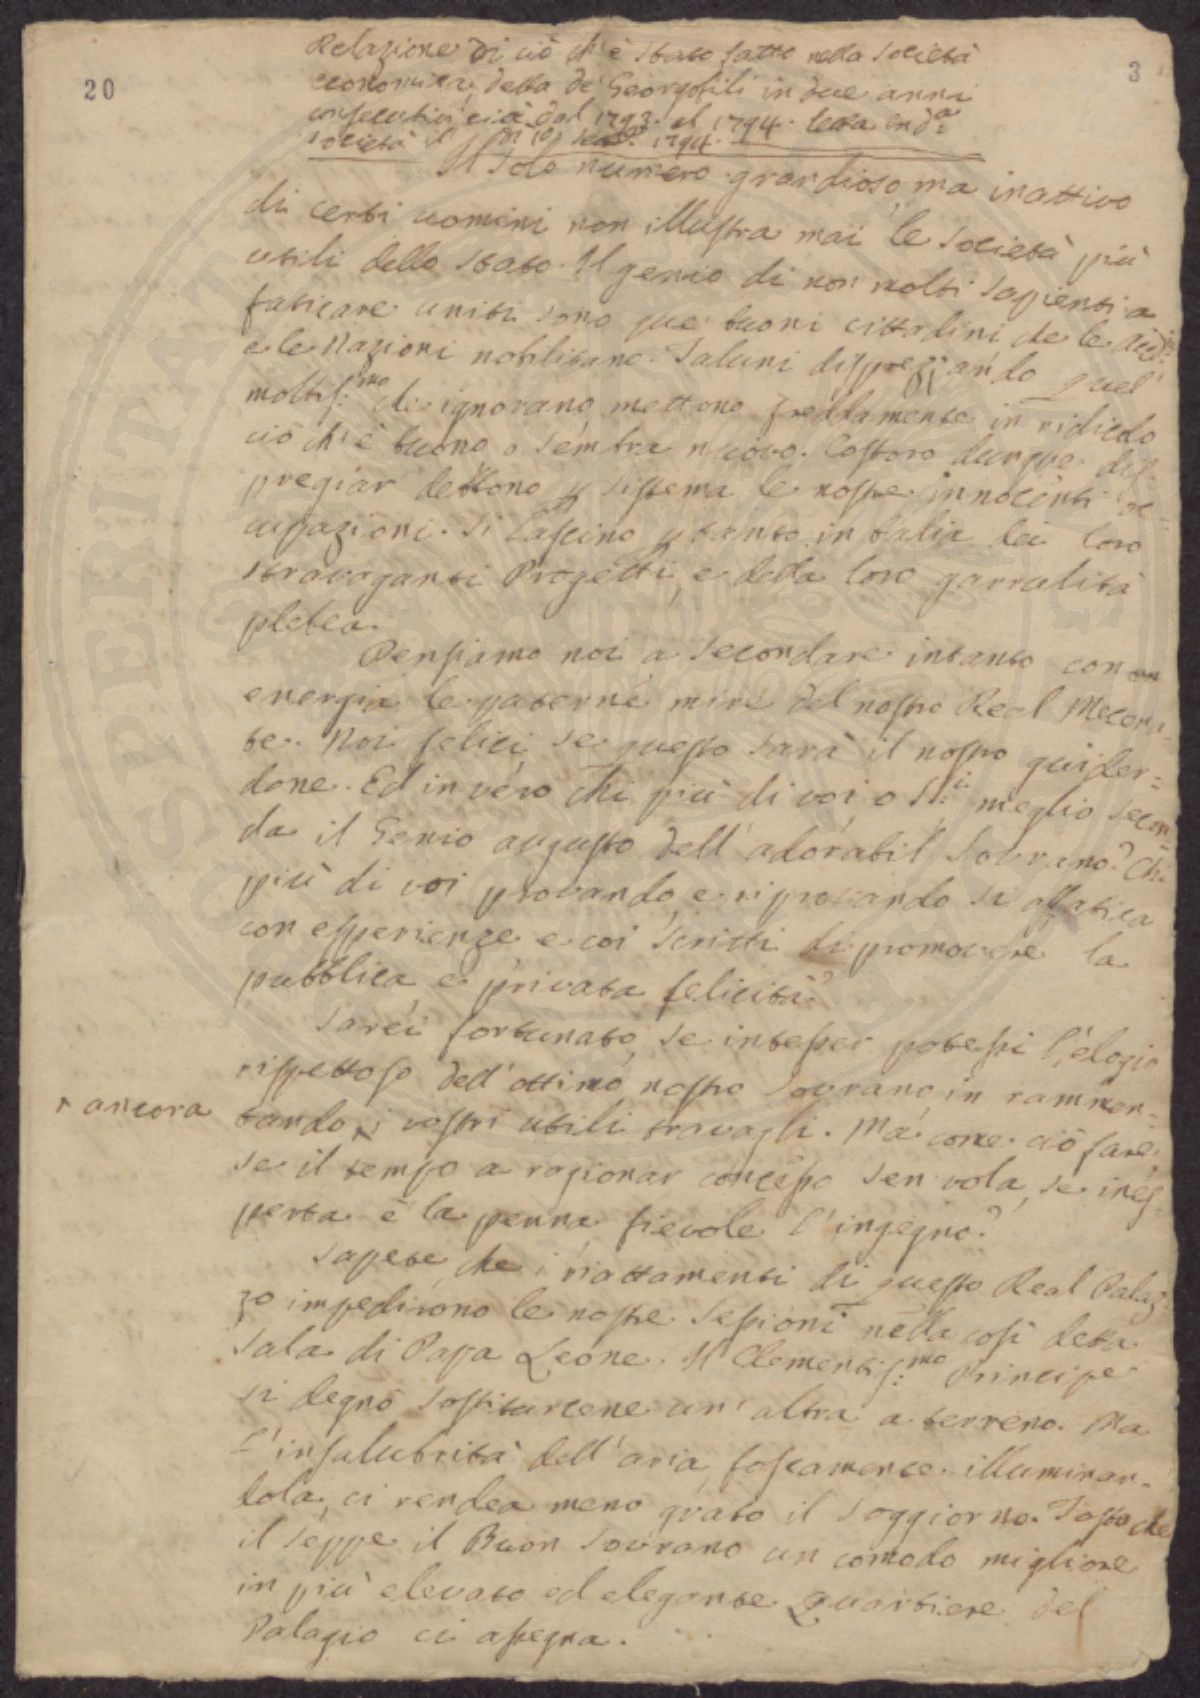 20
3
Relazione di ciò ch'è stato fatto nella Società
economica detta de' Georgofili in due anni
consecutivi cioè dal 1793. al 1794. letta in d.a
società il 1794.
Il Solo numero grandioso, ma inattivo
di certi uomini non illustra mai le Società più
utili dello Stato. Il genio di non molti Sapienti a
faticare uniti sono que' buoni cittadini che le
e le Nazioni nobilitano. Taluni dispregiando quel
moltiss:mo che ignorano, mettono freddamente in ridicolo
ciò ch'è buono o sembra nuovo. Costoro dunque dis=
pregiar debbono p sistema le nostre innocenti oc=
cupazioni. Si lascino p tanto in balia dei loro
stravaganti Progetti, e della loro garrulità
plebea.
Pensiamo noi a secondare intanto con
energia le paterne mire del nostro Real Mecena=
te. Noi felici, se questo sarà il nostro guider=
done. Ed in vero chi più di voi, o S:i meglio secon
da il Genio augusto dell'adorabil Sovrano? Chi
più di voi provando e riprovando si affatica
con esperienze e coi scritti di promovere la
pubblica e privata felicità?
Sarei fortunato, se intesser potessi l'elogio
rispettoso dell'ottimo nostro Sovrano, in rammen=
ancora
tando i vostri utili travagli. Ma come ciò fare,
se il tempo a ragionar concesso sen vola, se ines=
perta è la penna, fievole l'ingegno?
Sapete che i riattamenti di questo Real Palaz
zo impedirono le nostre Sessioni nella così detta
Sala di Papa Leone. Il Clementiss:mo Principe
si degnò sostituircene un'altra a terreno. Ma
l'insalubrità dell'aria, foscamente illuminan=
dola, ci rendea meno grato il soggiorno. Tosto che
il seppe il Buon Sovrano un comodo migliore
in più elevato ed elegante Quartiere del
Palagio ci assegna.